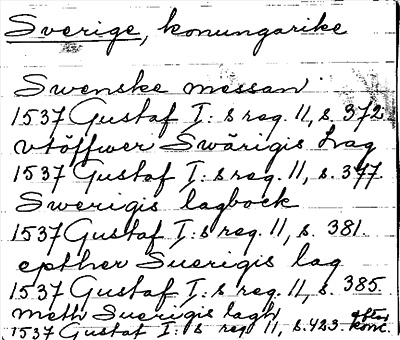 Sverige, konungarike
Swenske messan
1537 Gustaf I:s reg. 11, s. 372
vtöffwer Swärigis Lag
1537 Gustaf I:s reg. 11, s. 377.
Swerigis lagboek
1537 Gustaf I:s reg. 11, s. 381.
epther Suerigis lag
1537 Gustaf I:s reg. 11, s. 385.
meth Suerigis lagh
1537 Gustaf I:s reg 11, s. 423.